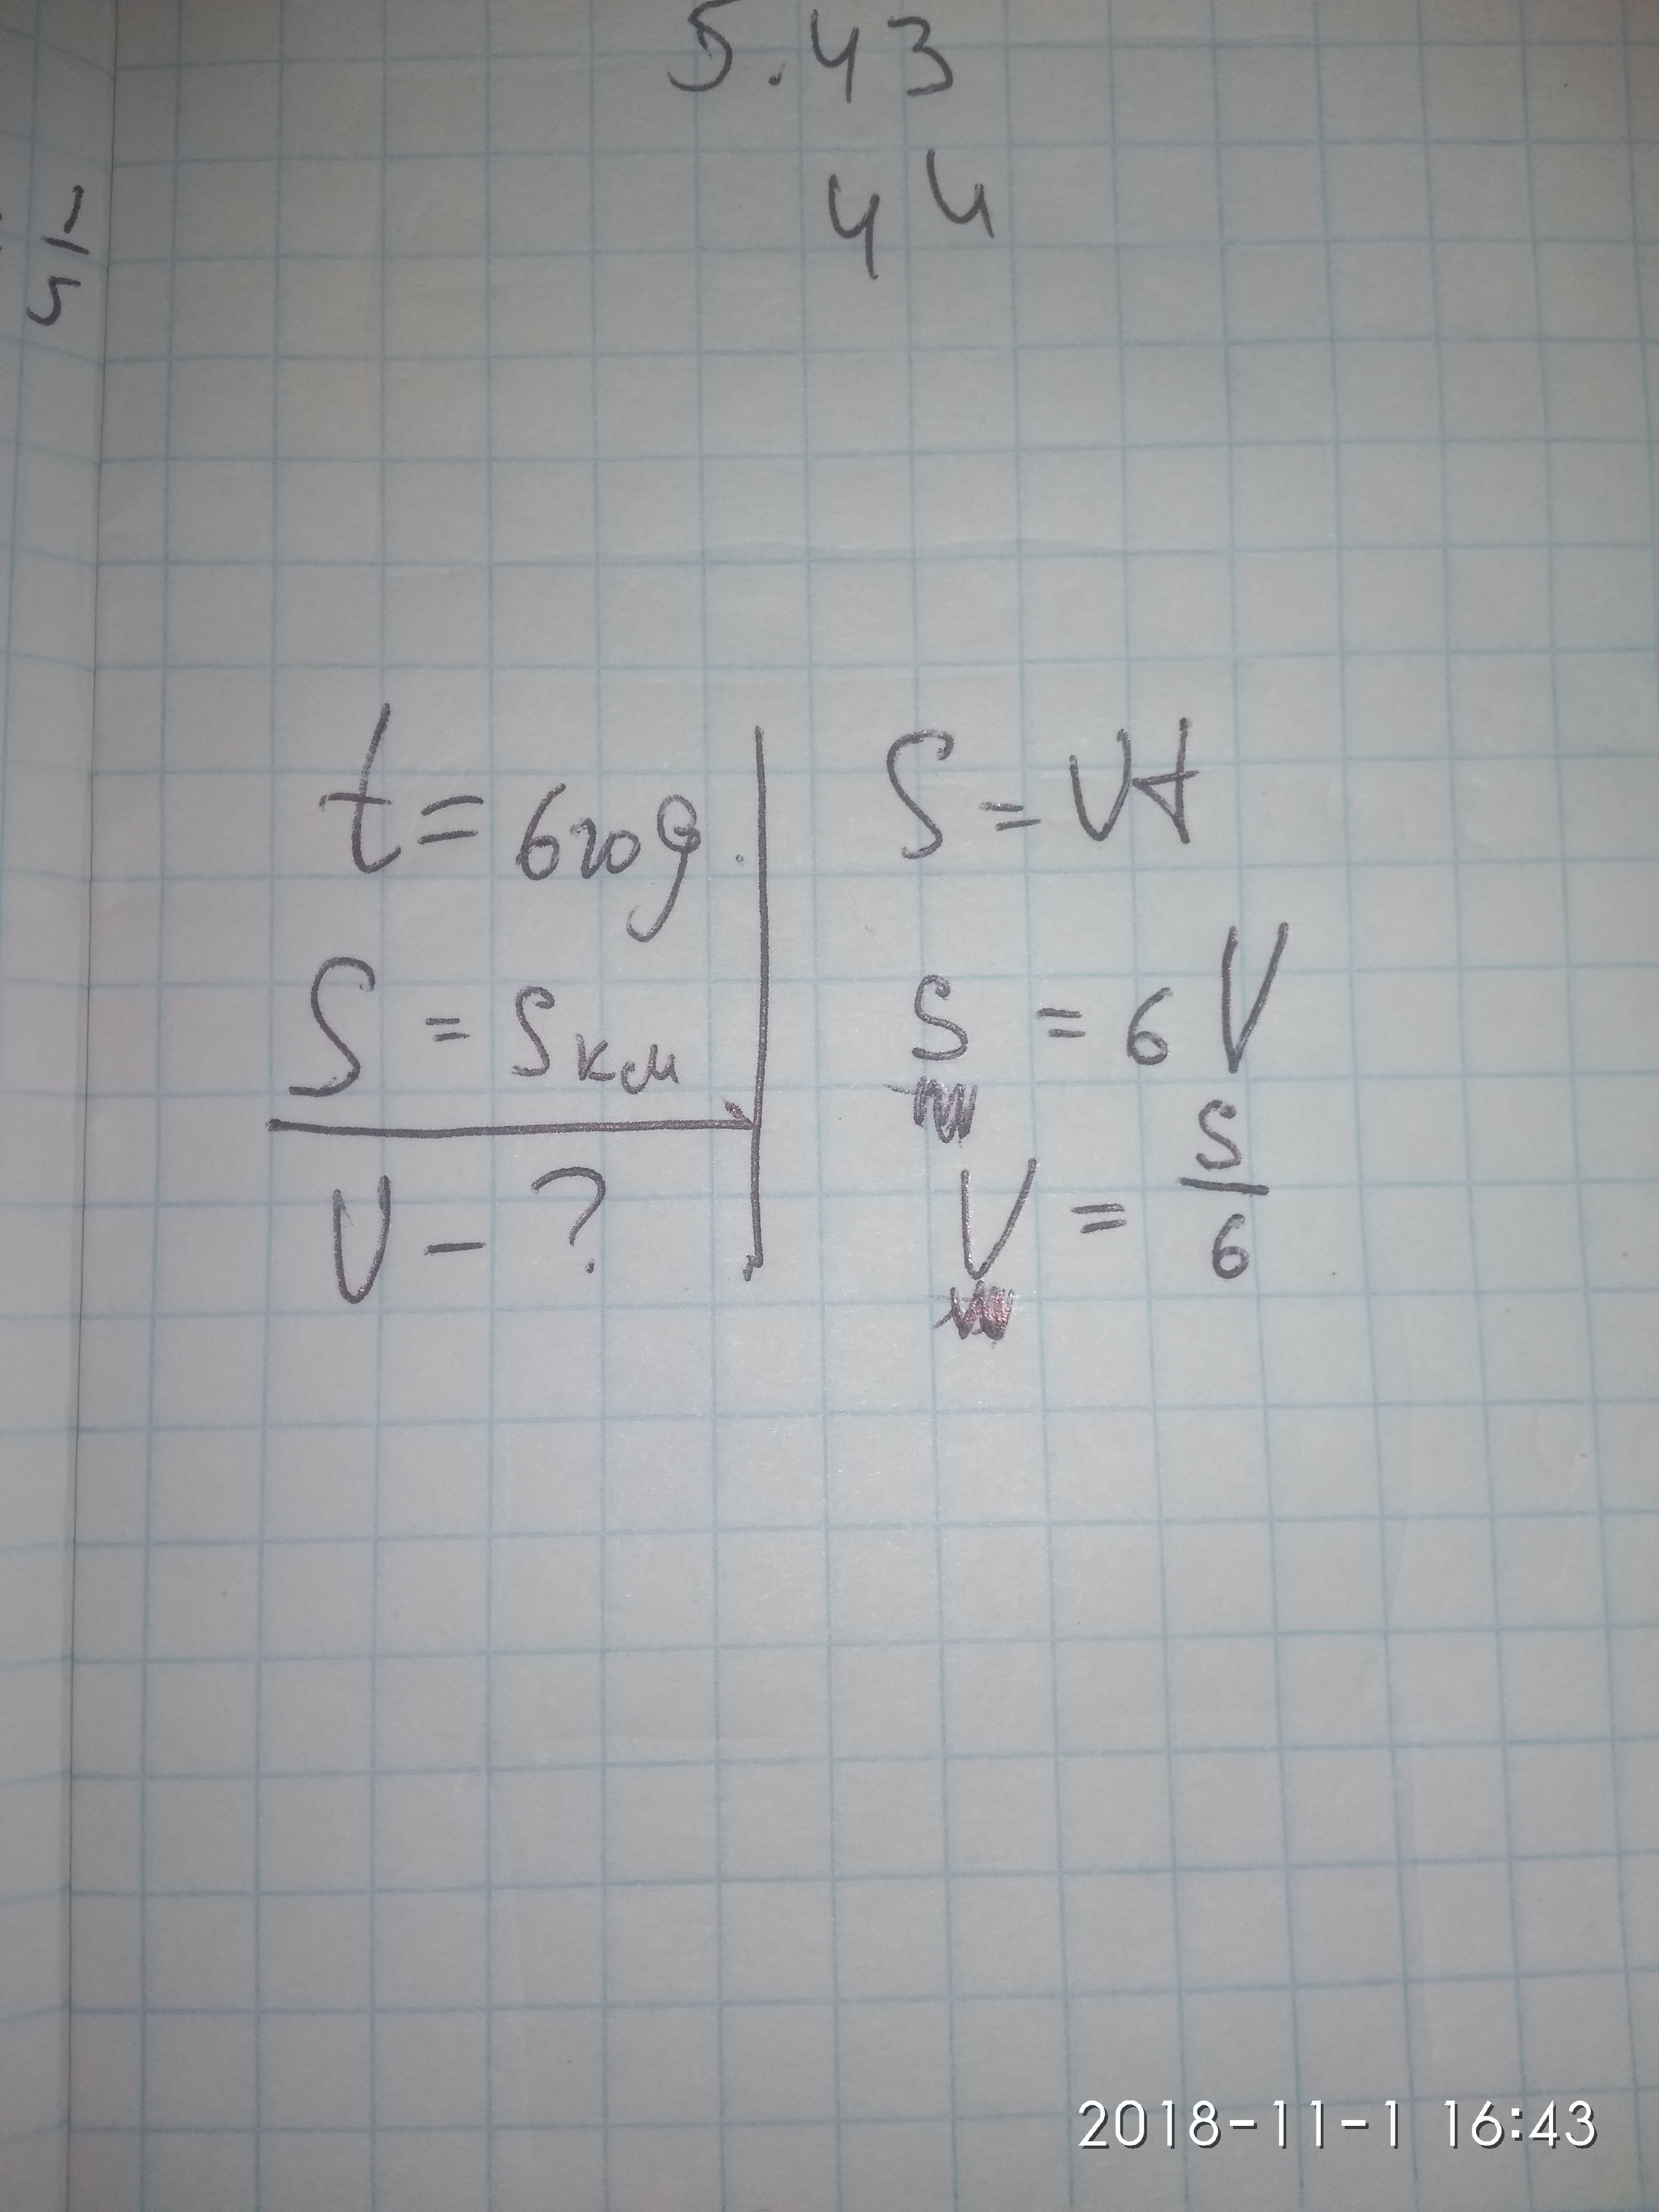 5.43
44
t = 6 год.
S = S км
V - ?
S = Vt
S = 6V
V = S/6
2018-11-1 16:43